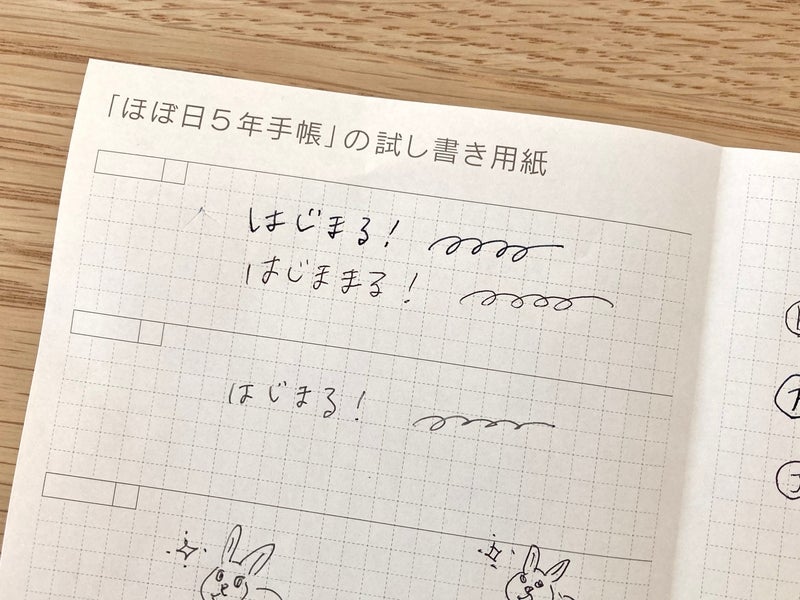 「ほぼ日５年手帳」の試し書き用紙
はじまる！
はじままる！
はじまる！